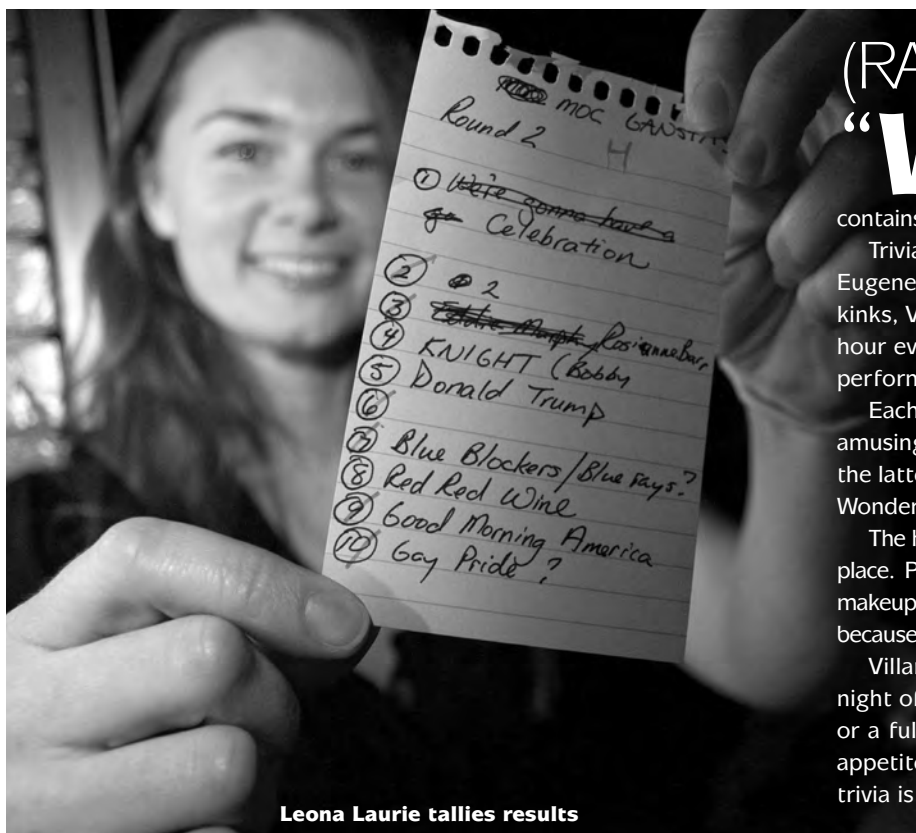 MOC GANSTA
Round 2
H
① We're gonna have a
Celebration
② 2
③ Eddie Murph RosianneBar,
④ KNIGHT (Bobby
⑤ Donald Trump
⑥
⑦ Blue Blockers/Blue rays?
⑧ Red Red Wine
⑨ Good Morning America
⑩ Gay Pride ?
Leona Laurie tallies results
(RA
“W
contains
Trivia
Eugene
kinks, V
hour ev
perform
Each
amusing
the latt
Wonder
The
place. P
makeup
because
Villa
night o
or a ful
appetit
trivia is